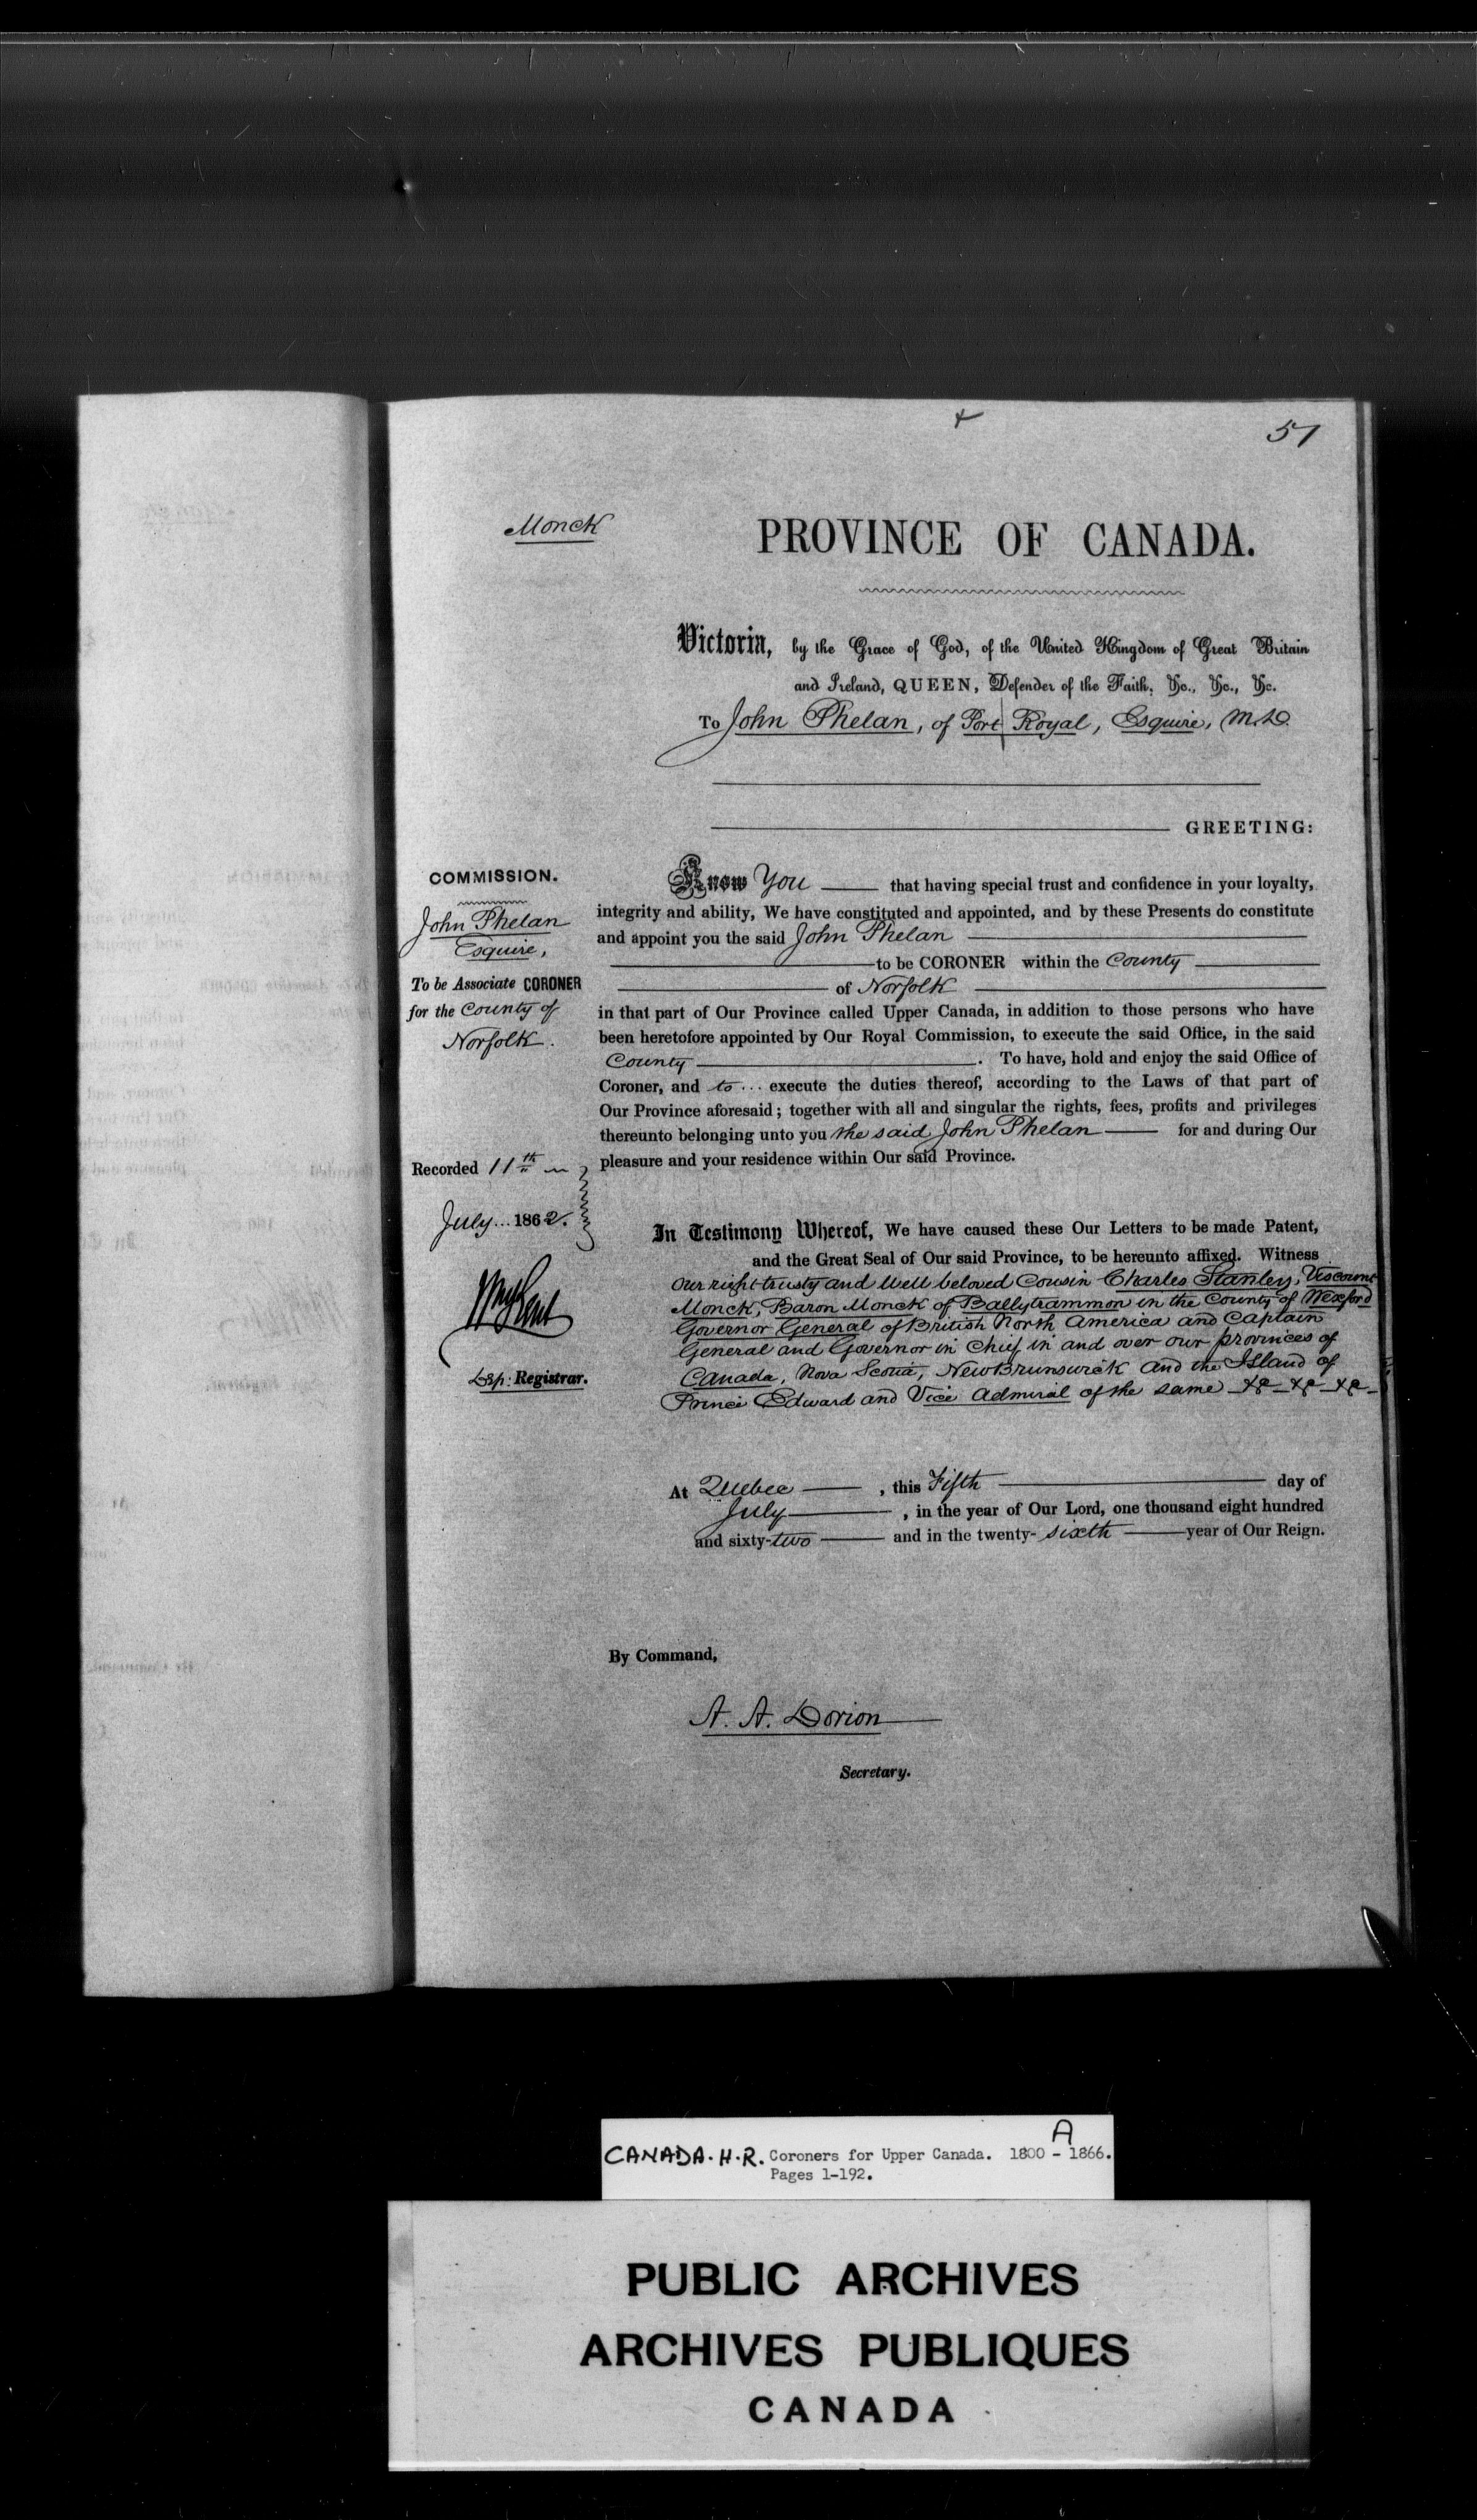 51
Monck
PROVINCE OF CANADA.
Victoria, by the Grace of God, of the United Kingdom of Great Britain
and Ireland, QUEEN, Defender of the Faith, &c., &c., &c.
To John Phelan, of Port Royal, Esquire, M.D.
GREETING:
COMMISSION.
John Phelan
Esquire,
To be Associate CORONER
for the County of
Norfolk.
Recorded 11th
July... 1862.
Wm Kent
Dep: Registrar.
Know You that having special trust and confidence in your loyalty,
integrity and ability, We have constituted and appointed, and by these Presents do constitute
and appoint you the said John Phelan
to be CORONER within the County
of Norfolk
in that part of Our Province called Upper Canada, in addition to those persons who have
been heretofore appointed by Our Royal Commission, to execute the said Office, in the said
County . To have, hold and enjoy the said Office of
Coroner, and to ... execute the duties thereof, according to the Laws of that part of
Our Province aforesaid; together with all and singular the rights, fees, profits and privileges
thereunto belonging unto you the said John Phelan for and during Our
pleasure and your residence within Our said Province.
In Testimony Whereof, We have caused these Our Letters to be made Patent,
and the Great Seal of Our said Province, to be hereunto affixed. Witness
Our right trusty and Well beloved Cousin Charles Stanley, Viscount
Monck, Baron Monck of Ballytrammon in the County of Wexford
Governor General of British North America and Captain
General and Governor in Chief in and over our provinces of
Canada, Nova Scotia, New Brunswick and the Island of
Prince Edward and Vice Admiral of the same &c &c &c
At Quebec , this Fifth day of
July , in the year of Our Lord, one thousand eight hundred
and sixty-two and in the twenty-sixth year of Our Reign.
By Command,
A. A. Dorion
Secretary.
A
CANADA. H.R. Coroners for Upper Canada. 1800 - 1866.
Pages 1-192.
PUBLIC ARCHIVES
ARCHIVES PUBLIQUES
CANADA